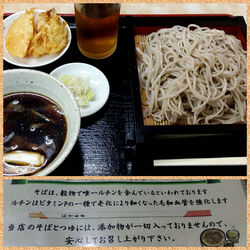 そばは、穀物で唯一ルチンを含んでいるといわれております
ルチンはビタミンPの一種で老化により細くなった毛細血管を強化します
当店のそばとつゆには、添加物が一切入っておりませんので、
安心してお召し上がり下さい。